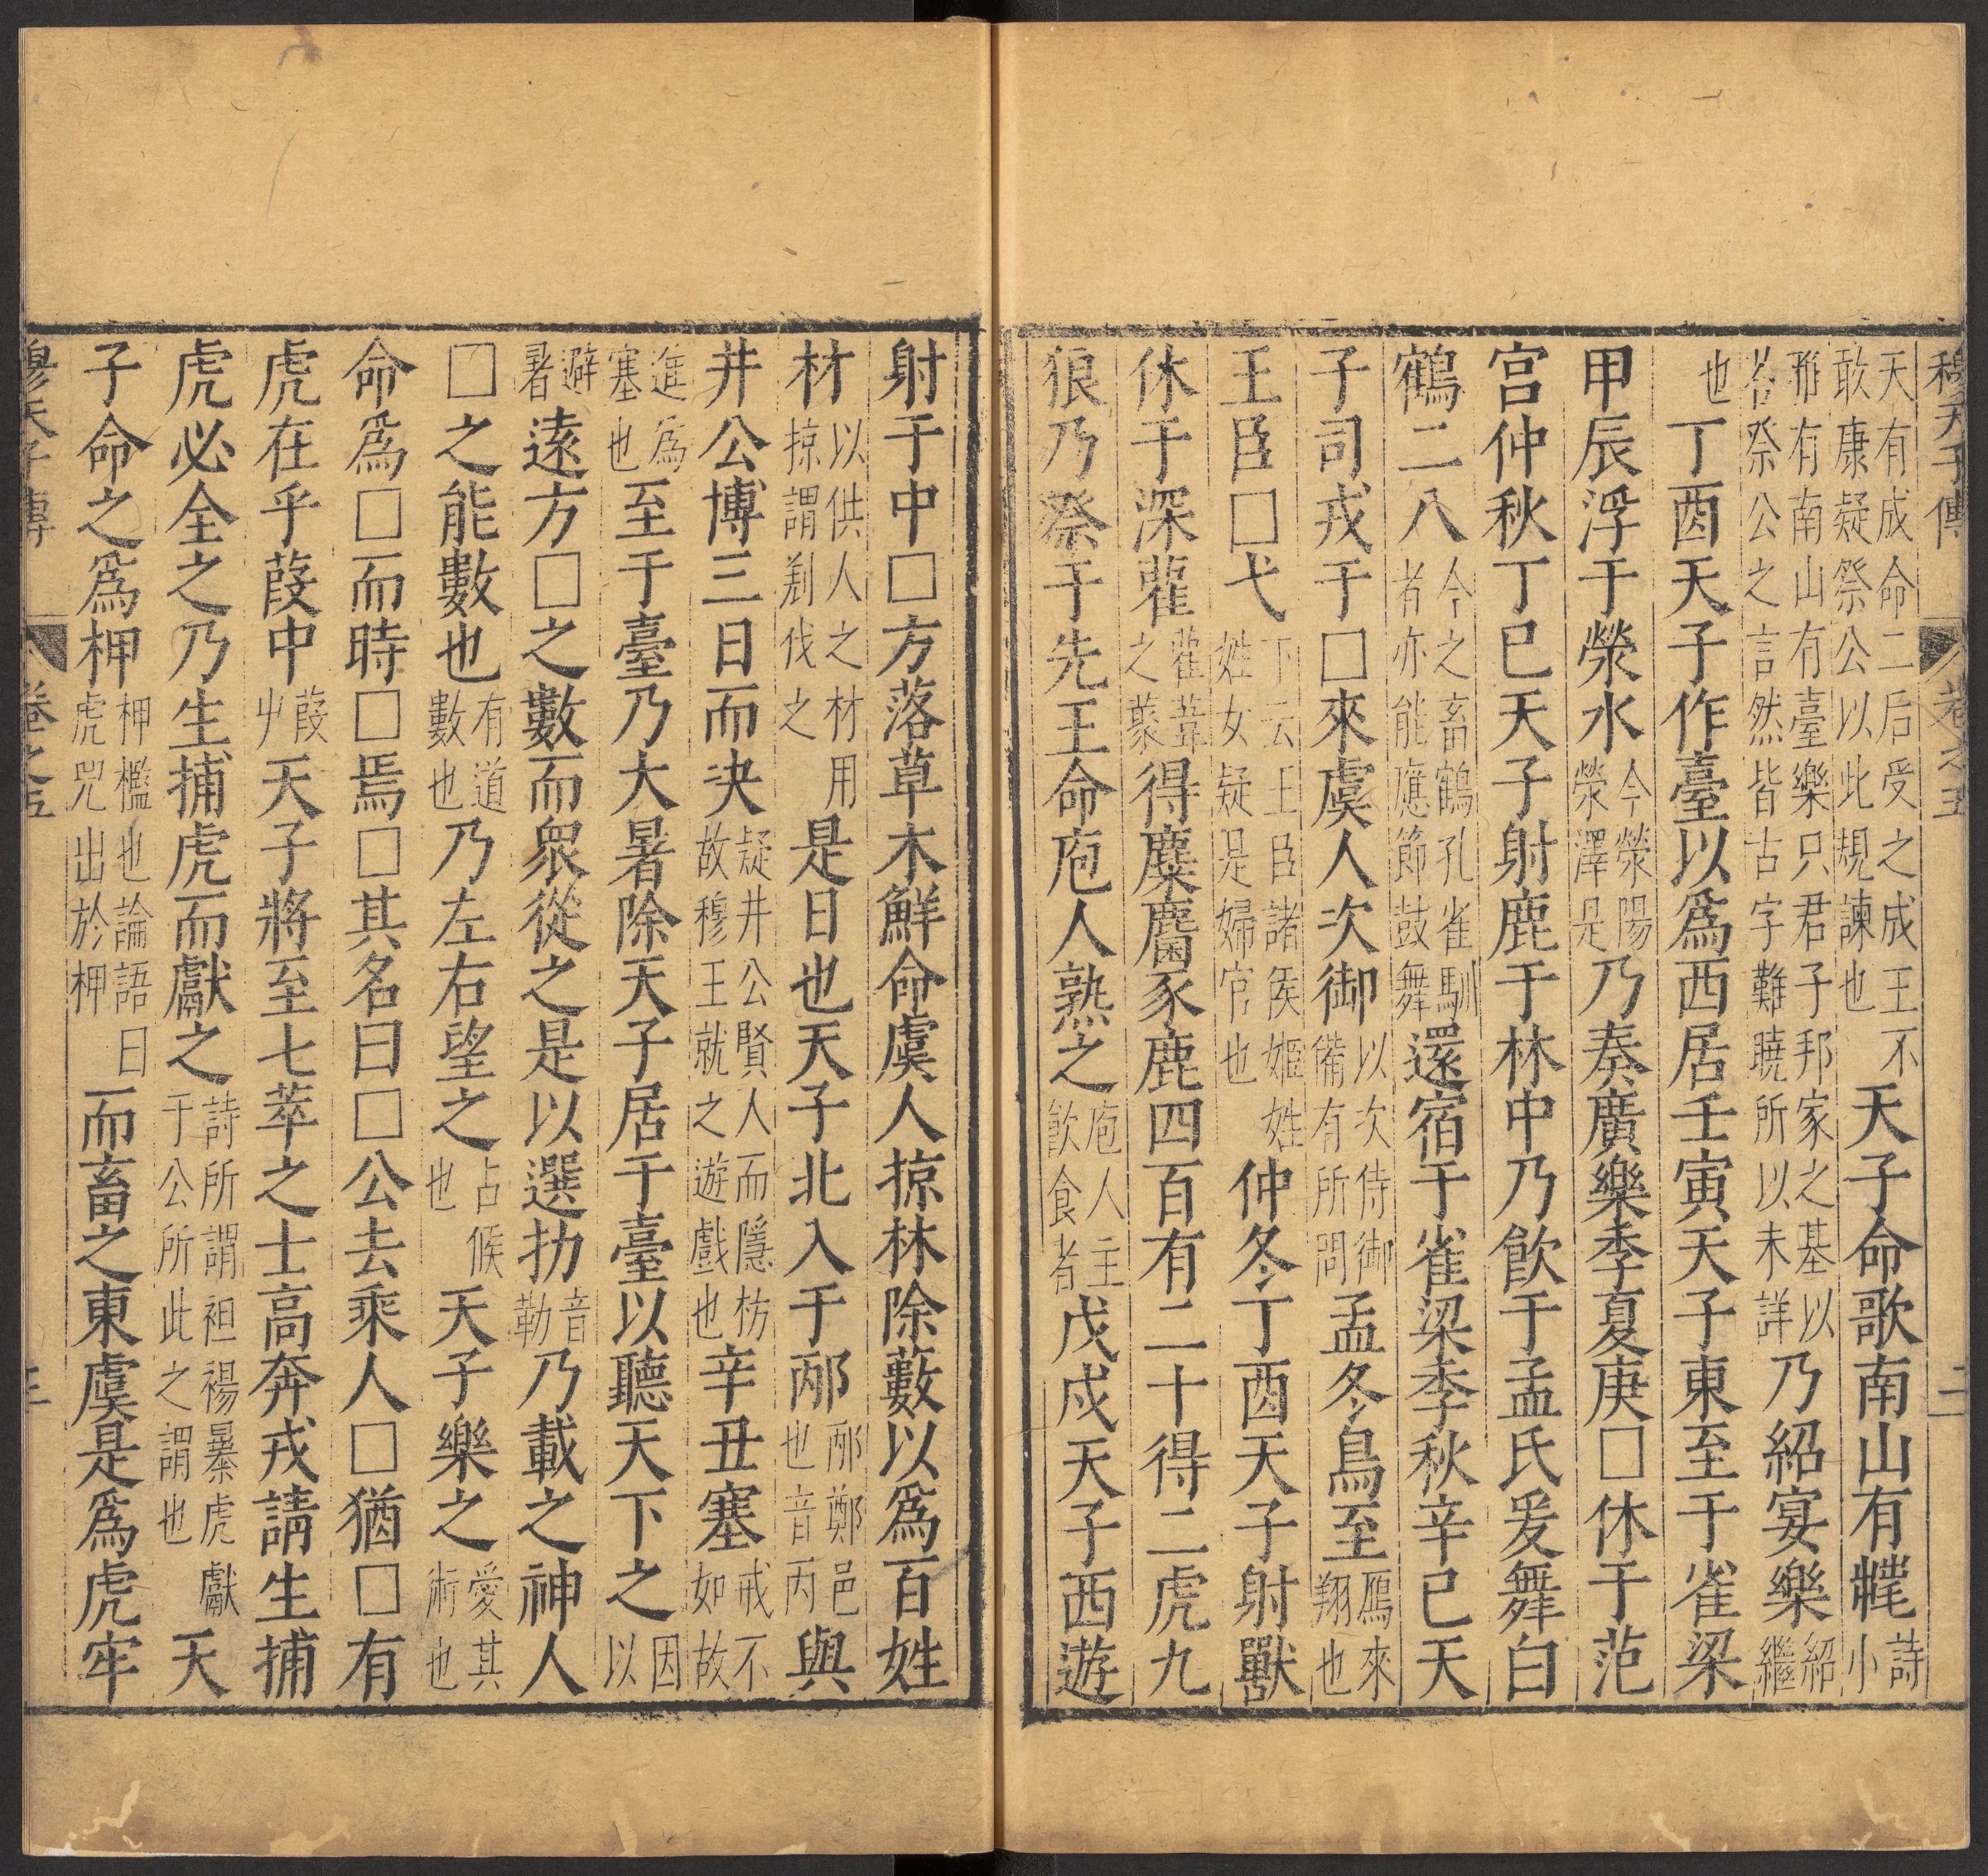 穆天子傳 卷之五 二
天有成命二后受之成王不敢康疑祭公以此規諫也天子命歌南山有詩小
雅有南山有臺樂只君子邦家之基以荅祭公之言然皆古字難曉所以未詳乃紹宴樂紹繼
也丁酉天子作臺以爲西居壬寅天子東至于雀梁
甲辰浮于滎水今滎陽滎澤是乃奏廣樂季夏庚□休于范
宫仲秋丁巳天子射鹿于林中乃飲于孟氏爰舞白
鶴二八今之畜鶴孔雀馴者亦能應節鼓舞還宿于雀梁季秋辛巳天
子司戎于□來虞人次御以次侍御備有所問孟冬鳥至鴈來翔也
王臣□弋下云王臣諸侯姬姓姓女疑是婦官也仲冬丁酉天子射獸
休于深雚雚葦之藂得麋麕豕鹿四百有二十得二虎九
狼乃祭于先王命庖人熟之庖人主飲食者戊戌天子西遊
射于中□方落草木鮮命虞人掠林除藪以爲百姓
材以供人之材用掠謂剗伐之是日也天子北入于邴邴鄭邑也音丙與
井公博三日而決疑井公賢人而隱枋故穆王就之遊戲也辛丑塞戒不如故
進爲塞也至于臺乃大暑除天子居于臺以聽天下之因以
避暑遠方□之數而衆從之是以選扐音勒乃載之神人
□之能數也有道數也乃左右望之占候也天子樂之愛其術也
命爲□而時□焉□其名曰□公去乘人□猶□有
虎在乎葭中葭艸天子將至七萃之士高奔戎請生捕
虎必全之乃生捕虎而獻之詩所謂袒裼暴虎獻于公所此之謂也天
子命之爲柙柙檻也論語曰虎兕出於柙而畜之東虞是爲虎牢
穆天子傳 卷之五 三